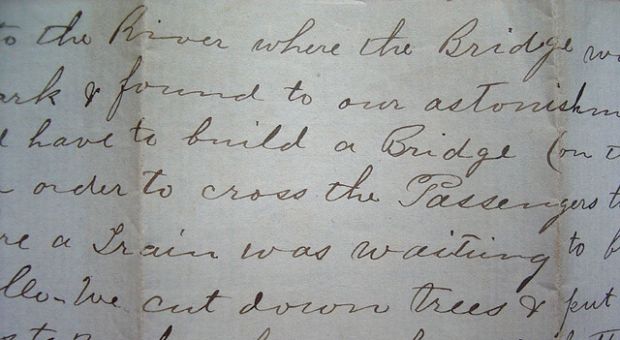 to the River where the Bridge
& found to our astonishm
have to build a Bridge (on
order to cross the Passengers
a Train was waiting to
We cut down trees & put